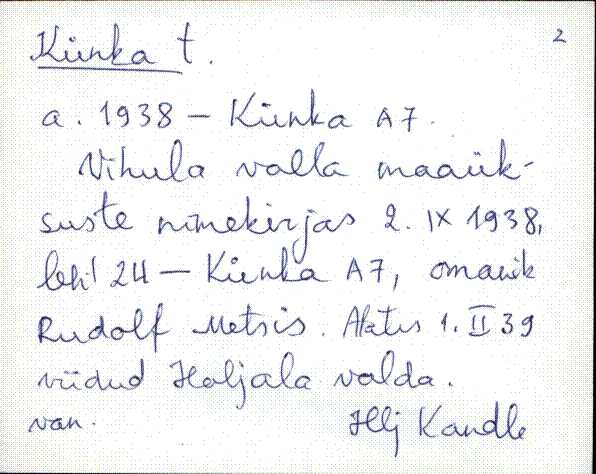 Künka t. 2
a. 1938 – Künka A7.
Vihula valla maaük-
suste nimekirjas 2. IX 1938,
lehl 24 – Künka A7, omanik
Rudolf Metsis. Alates 1. II 39
viidud Haljala valda.
van. Hlj Kandle